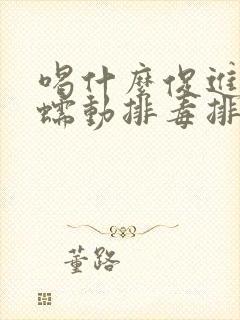 喝什麼促進
蠕動排毒排
董路